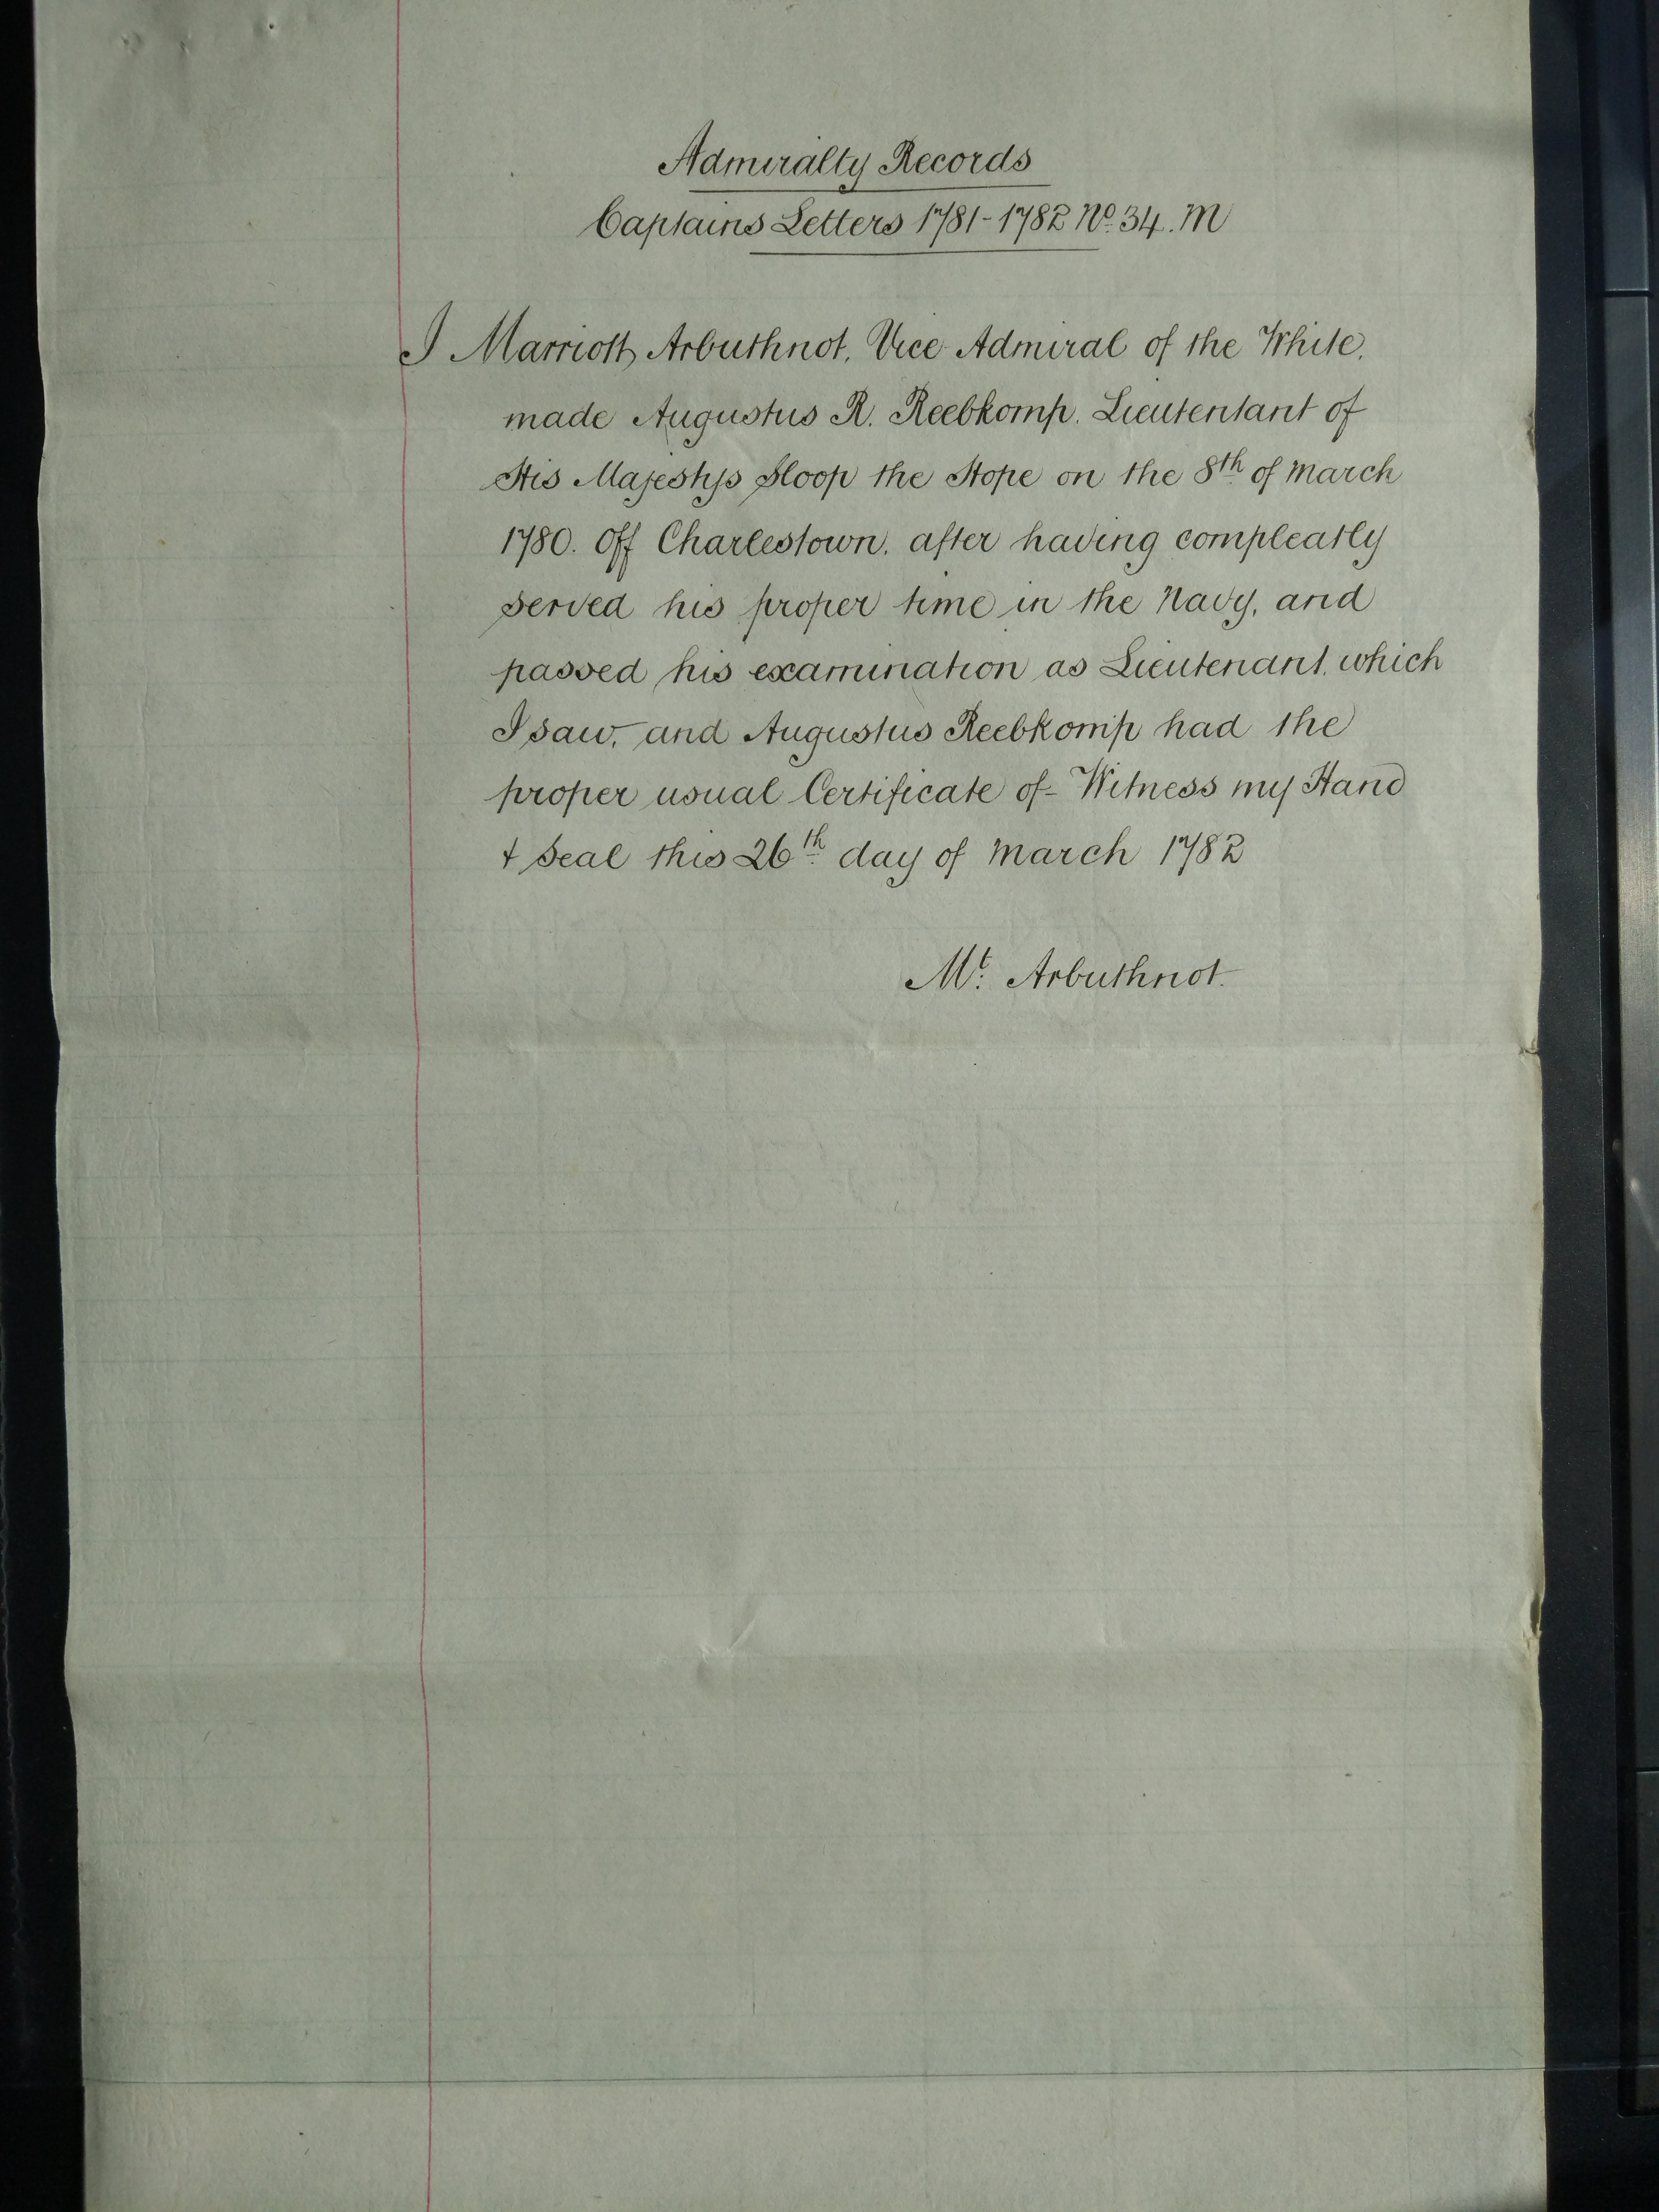 Admiralty Records
Captains Letters 1781-1782 No. 34. M
I Marriott Arbuthnot, Vice Admiral of the White,
made Augustus R. Reebkomp. Lieutentant of
His Majestys Sloop the Hope on the 8th of March
1780. off Charlestown, after having compleatly
served his proper time in the Navy, and
passed his examination as Lieutenant, which
I saw, and Augustus Reebkomp had the
proper usual Certificate of - Witness my Hand
& Seal this 26th day of March 1782
Mt. Arbuthnot.